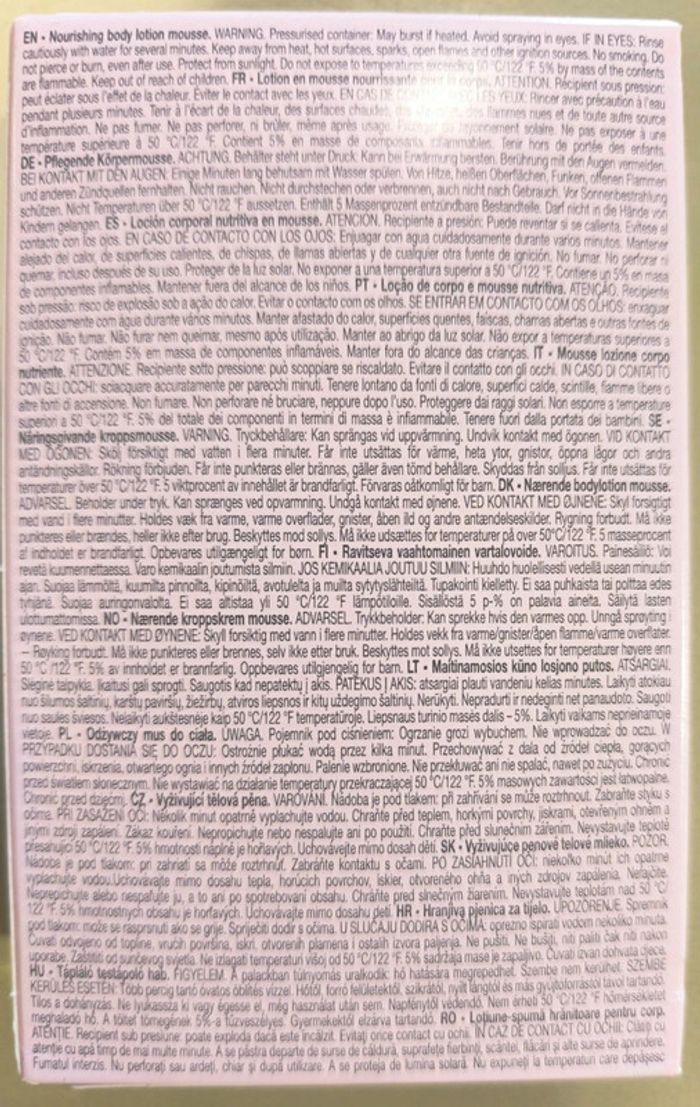 EN • Nourishing body lotion mousse. WARNING. Pressurised container: May burst if heated. Avoid spraying in eyes. IF IN EYES: Rinse
cautiously with water for several minutes. Keep away from heat, hot surfaces, sparks, open flames and other ignition sources. No smoking. Do
not pierce or burn, even after use. Protect from sunlight. Do not expose to temperatures exceeding 50 °C/122 °F. 5% by mass of the contents
are flammable. Keep out of reach of children. FR • Lotion en mousse nourrissante pour le corps. ATTENTION. Récipient sous pression:
peut éclater sous l'effet de la chaleur. Éviter le contact avec les yeux. EN CAS DE CONTACT AVEC LES YEUX: Rincer avec précaution à l'eau
pendant plusieurs minutes. Tenir à l'écart de la chaleur, des surfaces chaudes, des flammes nues et de toute autre source
d'inflammation. Ne pas fumer. Ne pas perforer, ni brûler, même après usage. Protéger du rayonnement solaire. Ne pas exposer à une
température supérieure à 50 °C/122 °F. Contient 5% en masse de composants inflammables. Tenir hors de portée des enfants.
DE • Pflegende Körpermousse. ACHTUNG. Behälter steht unter Druck: Kann bei Erwärmung bersten. Berührung mit den Augen vermeiden.
BEI KONTAKT MIT DEN AUGEN: Einige Minuten lang behutsam mit Wasser spülen. Von Hitze, heißen Oberflächen, Funken, offenen Flammen
und anderen Zündquellen fernhalten. Nicht rauchen. Nicht durchstechen oder verbrennen, auch nicht nach Gebrauch. Vor Sonnenbestrahlung
schützen. Nicht Temperaturen über 50 °C/122 °F aussetzen. Enthält 5 Massenprozent entzündbare Bestandteile. Darf nicht in die Hände von
Kindern gelangen. ES • Loción corporal nutritiva en mousse. ATENCIÓN. Recipiente a presión: Puede reventar si se calienta. Evítese el
contacto con los ojos. EN CASO DE CONTACTO CON LOS OJOS: Enjuagar con agua cuidadosamente durante varios minutos. Mantener
alejado del calor, de superficies calientes, de chispas, de llamas abiertas y de cualquier otra fuente de ignición. No fumar. No perforar ni
quemar, incluso después de su uso. Proteger de la luz solar. No exponer a una temperatura superior a 50 °C/122 °F. Contiene un 5% en masa
de componentes inflamables. Mantener fuera del alcance de los niños. PT • Loção de corpo e mousse nutritiva. ATENÇÃO. Recipiente
sob pressão: risco de explosão sob a ação do calor. Evitar o contacto com os olhos. SE ENTRAR EM CONTACTO COM OS OLHOS: enxaguar
cuidadosamente com água durante vários minutos. Manter afastado do calor, superfícies quentes, faíscas, chamas abertas e outras fontes de
ignição. Não fumar. Não furar nem queimar, mesmo após utilização. Manter ao abrigo da luz solar. Não expor a temperaturas superiores a
50 °C/122 °F. Contém 5% em massa de componentes inflamáveis. Manter fora do alcance das crianças. IT • Mousse lozione corpo
nutriente. ATTENZIONE. Recipiente sotto pressione: può scoppiare se riscaldato. Evitare il contatto con gli occhi. IN CASO DI CONTATTO
CON GLI OCCHI: sciacquare accuratamente per parecchi minuti. Tenere lontano da fonti di calore, superfici calde, scintille, fiamme libere o
altre fonti di accensione. Non fumare. Non perforare né bruciare, neppure dopo l'uso. Proteggere dai raggi solari. Non esporre a temperature
superiori a 50 °C/122 °F. 5% del totale dei componenti in termini di massa è infiammabile. Tenere fuori dalla portata dei bambini. SE •
Näringsgivande kroppsmousse. VARNING. Tryckbehållare: Kan sprängas vid uppvärmning. Undvik kontakt med ögonen. VID KONTAKT
MED ÖGONEN: Skölj försiktigt med vatten i flera minuter. Får inte utsättas för värme, heta ytor, gnistor, öppna lågor och andra
antändningskällor. Rökning förbjuden. Får inte punkteras eller brännas, gäller även tömd behållare. Skyddas från solljus. Får inte utsättas för
temperaturer över 50 °C/122 °F. 5 viktprocent av innehållet är brandfarligt. Förvaras oåtkomligt för barn. DK • Nærende bodylotion mousse.
ADVARSEL. Beholder under tryk. Kan sprænges ved opvarmning. Undgå kontakt med øjnene. VED KONTAKT MED ØJNENE: Skyl forsigtigt
med vand i flere minutter. Holdes væk fra varme, varme overflader, gnister, åben ild og andre antændelseskilder. Rygning forbudt. Må ikke
punkteres eller brændes, heller ikke efter brug. Beskyttes mod sollys. Må ikke udsættes for temperaturer på over 50°C/122 °F. 5 masseprocent
af indholdet er brandfarligt. Opbevares utilgængeligt for børn. FI • Ravitseva vaahtomainen vartalovoide. VAROITUS. Painesäiliö: Voi
revetä kuumennettaessa. Varo kemikaalin joutumista silmiin. JOS KEMIKAALIA JOUTUU SILMIIN: Huuhdo huolellisesti vedellä usean minuutin
ajan. Suojaa lämmöltä, kuumilta pinnoilta, kipinöiltä, avotulelta ja muilta sytytyslähteiltä. Tupakointi kielletty. Ei saa puhkaista tai polttaa edes
tyhjänä. Suojaa auringonvalolta. Ei saa altistaa yli 50 °C/122 °F lämpötiloille. Sisällöstä 5 p-% on palavia aineita. Säilytä lasten
ulottumattomissa. NO • Nærende kroppskrem mousse. ADVARSEL. Trykkbeholder: Kan sprekke hvis den varmes opp. Unngå sprøyting i
øynene. VED KONTAKT MED ØYNENE: Skyll forsiktig med vann i flere minutter. Holdes vekk fra varme/gnister/åpen flamme/varme overflater.
– Røyking forbudt. Må ikke punkteres eller brennes, selv ikke etter bruk. Beskyttes mot sollys. Må ikke utsettes for temperaturer høyere enn
50 °C /122 °F. 5% av innholdet er brannfarlig. Oppbevares utilgjengelig for barn. LT • Maitinamosios kūno losjono putos. ATSARGIAI.
Slėginė talpykla. Įkaitusi gali sprogti. Saugotis kad nepatektų į akis. PATEKUS Į AKIS: atsargiai plauti vandeniu kelias minutes. Laikyti atokiau
nuo šilumos šaltinių, karštų paviršių, žiežirbų, atviros liepsnos ir kitų uždegimo šaltinių. Nerūkyti. Nepradurti ir nedeginti net panaudoto. Saugoti
nuo saulės šviesos. Nelaikyti aukštesnėje kaip 50 °C/122 °F temperatūroje. Liepsnaus turinio masės dalis – 5%. Laikyti vaikams neprieinamoje
vietoje. PL • Odżywczy mus do ciała. UWAGA. Pojemnik pod ciśnieniem: Ogrzanie grozi wybuchem. Nie wprowadzać do oczu. W
PRZYPADKU DOSTANIA SIĘ DO OCZU: Ostrożnie płukać wodą przez kilka minut. Przechowywać z dala od źródeł ciepła, gorących
powierzchni, iskrzenia, otwartego ognia i innych źródeł zapłonu. Palenie wzbronione. Nie przekłuwać ani nie spalać, nawet po zużyciu. Chronić
przed światłem słonecznym. Nie wystawiać na działanie temperatury przekraczającej 50 °C/122 °F. 5% masowych zawartości jest łatwopalne.
Chronić przed dziećmi. CZ • Vyživující tělová pěna. VAROVÁNÍ. Nádoba je pod tlakem: při zahřívání se může roztrhnout. Zabraňte styku s
očima. PŘI ZASAŽENÍ OČÍ: Několik minut opatrně vyplachujte vodou. Chraňte před teplem, horkými povrchy, jiskrami, otevřeným ohněm a
jinými zdroji zapálení. Zákaz kouření. Nepropichujte nebo nespalujte ani po použití. Chraňte před slunečním zářením. Nevystavujte teplotě
přesahující 50 °C/122 °F. 5% hmotnosti náplně je hořlavých. Uchovávejte mimo dosah dětí. SK • Vyživujúce penové telové mlieko. POZOR.
Nádoba je pod tlakom: pri zahriatí sa môže roztrhnúť. Zabráňte kontaktu s očami. PO ZASIAHNUTÍ OČÍ: niekoľko minút ich opatrne
vyplachujte vodou. Uchovávajte mimo dosahu tepla, horúcich povrchov, iskier, otvoreného ohňa a iných zdrojov zapálenia. Nefajčite.
Neprepichujte alebo nespaľujte ju, a to ani po spotrebovaní obsahu. Chráňte pred slnečným žiarením. Nevystavujte teplotám nad 50 °C/
122 °F. 5% hmotnostných obsahu je horľavých. Uchovávajte mimo dosahu detí. HR • Hranjiva pjenica za tijelo. UPOZORENJE. Spremnik
pod tlakom: može se rasprsnuti ako se grije. Spriječiti dodir s očima. U SLUČAJU DODIRA S OČIMA: oprezno ispirati vodom nekoliko minuta.
Čuvati odvojeno od topline, vrućih površina, iskri, otvorenih plamena i ostalih izvora paljenja. Ne pušiti. Ne bušiti, niti paliti čak niti nakon
uporabe. Zaštititi od sunčevog svjetla. Ne izlagati temperaturi višoj od 50 °C/122 °F. 5% sadržaja mase je zapaljivo. Čuvati izvan dohvata djece.
HU • Tápláló testápoló hab. FIGYELEM. A palackban túlnyomás uralkodik: hő hatására megrepedhet. Szembe nem kerülhet. SZEMBE
KERÜLÉS ESETÉN: Több percig tartó óvatos öblítés vízzel. Hőtől, forró felületektől, szikrától, nyílt lángtól és más gyújtóforrástól távol tartandó.
Tilos a dohányzás. Ne lyukassza ki vagy égesse el, még használat után sem. Napfénytől védendő. Nem érheti 50 °C/122 °F hőmérsékletet
meghaladó hő. A töltet tömegének 5%-a tűzveszélyes. Gyermekektől elzárva tartandó. RO • Loțiune-spumă hrănitoare pentru corp.
ATENȚIE. Recipient sub presiune: poate exploda dacă este încălzit. Evitați orice contact cu ochii. ÎN CAZ DE CONTACT CU OCHII: Clătiți cu
atenție cu apă timp de mai multe minute. A se păstra departe de surse de căldură, suprafețe fierbinți, scântei, flăcări și alte surse de aprindere.
Fumatul interzis. Nu perforați sau ardeți, chiar și după utilizare. A se proteja de lumina solară. Nu expuneți la temperaturi care depășesc